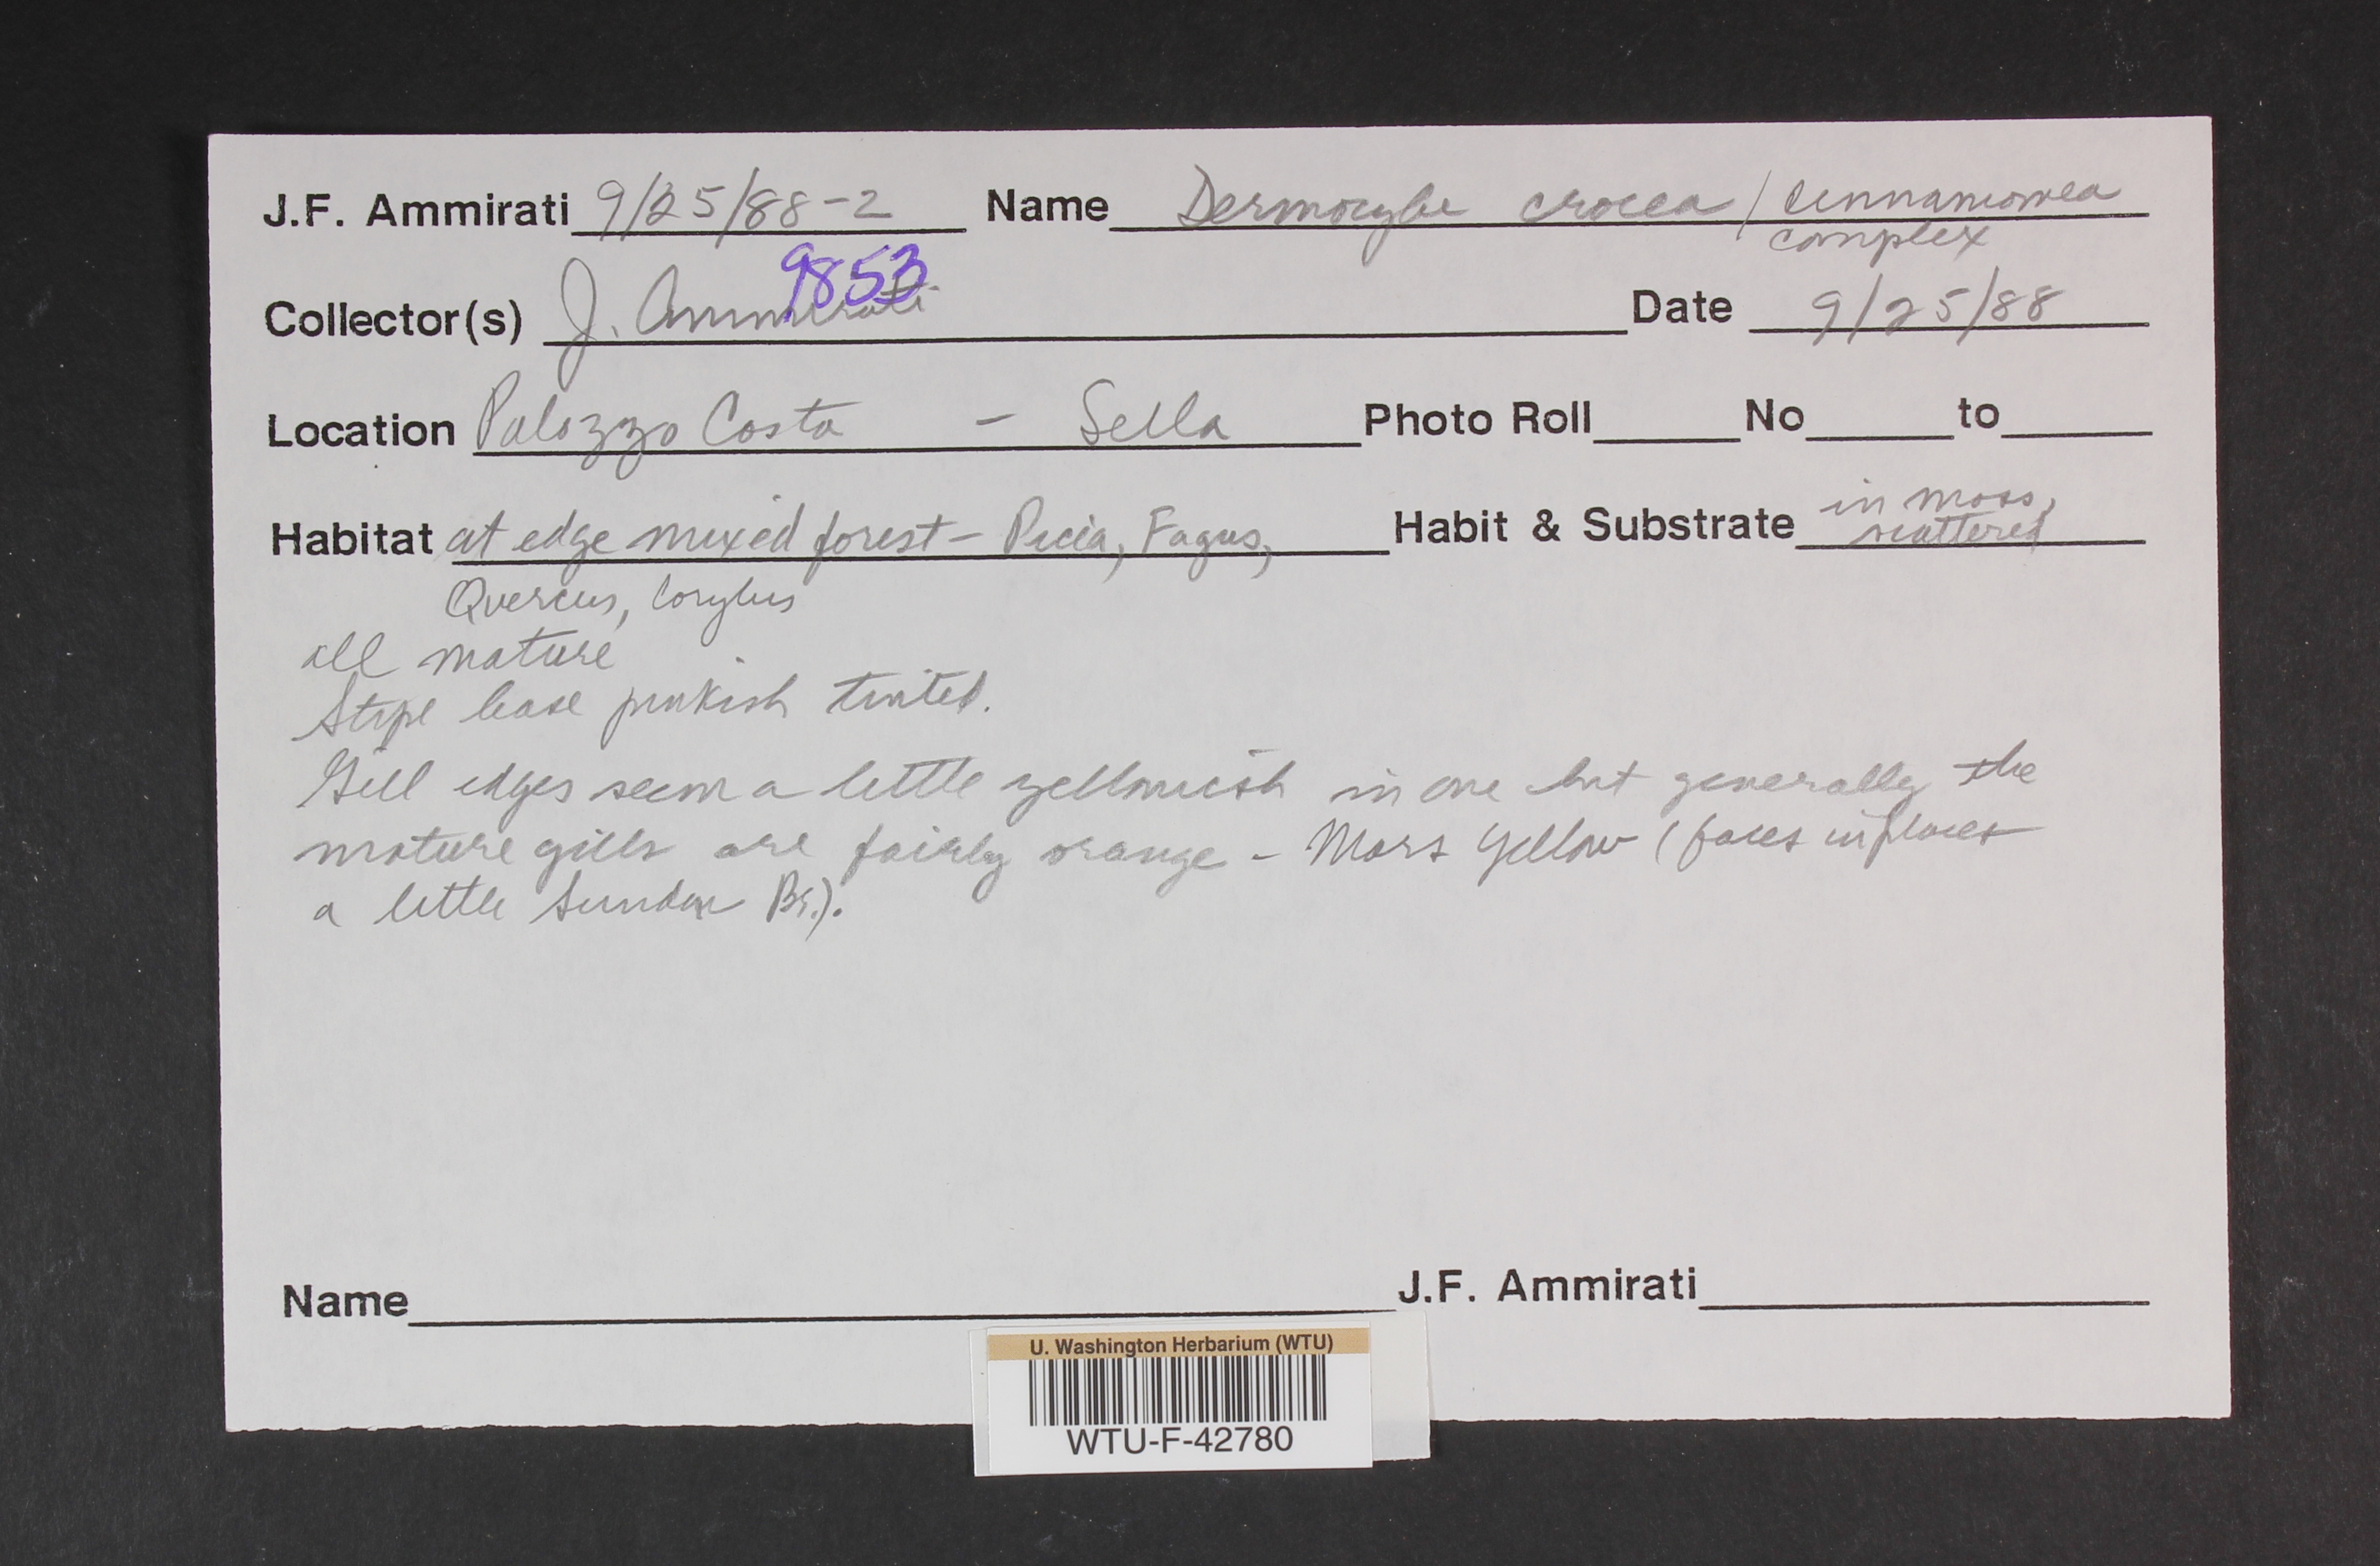 J.F. Ammirati 9/25/88-2 Name Dermocybe crocea / cinnamomea
complex
9853
Collector(s) J. Ammirati Date 9/25/88
Location Palozzo Costa - Sella Photo Roll No to
Habitat at edge mixed forest - Picia, Fagus, Habit & Substrate in moss,
scattered
Quercus, Corylus
all mature
Stipe base pinkish tinted.
Gill edges seem a little yellowish in one but generally the
mature gills are fairly orange - Mars Yellow (faces in places
a little Sudan Br.).
Name J.F. Ammirati
U. Washington Herbarium (WTU)
WTU-F-42780